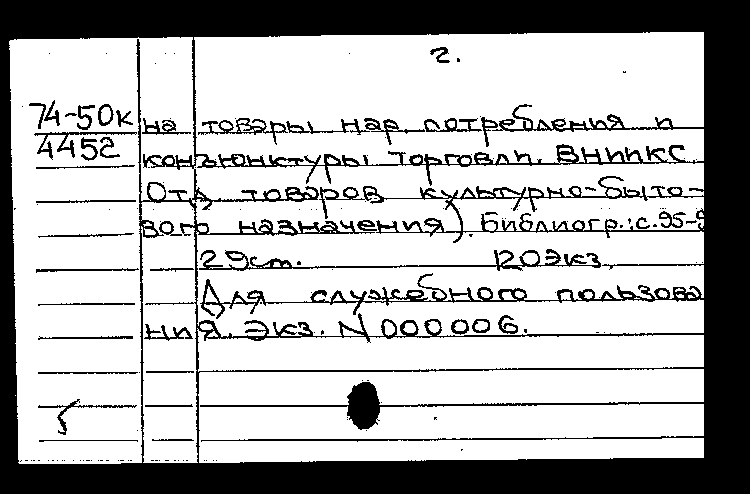 2.
74-50к на товары нар. потребления и
4452 конъюнктуры торговли. ВНИИКС
Отд товаров культурно-быто-
вого назначения). Библиогр.: с. 95-9
29 ст. 120 экз.
Для служебного пользова
ния. Экз. N 000006.